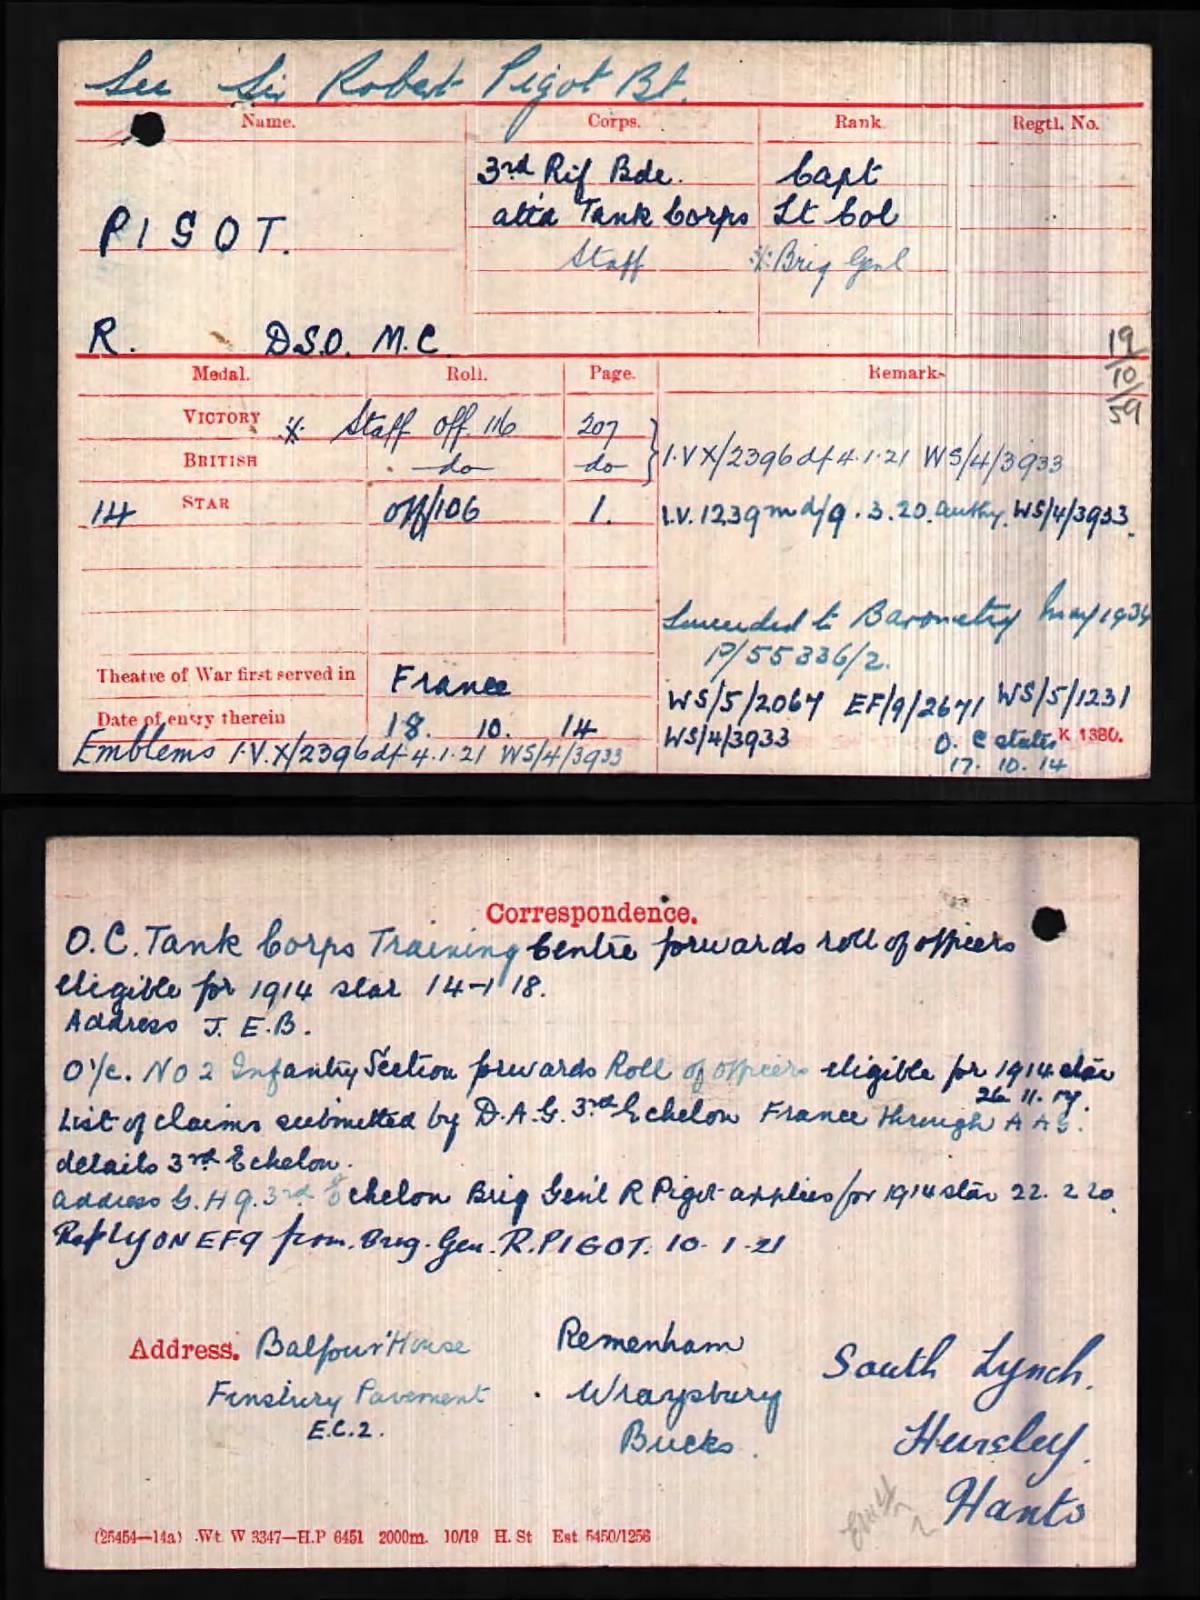 See Sir Robert Pigot Bt.
Name. Corps. Rank. Regtl. No.
3rd Rif Bde. Capt
PIGOT. att'd Tank Corps Lt Col
Staff Brig Genl
R. D.S.O. M.C.
19/10/59
Medal. Roll. Page. Remarks
VICTORY Staff off. 116 207
BRITISH do do I.V.X/2396 df 4.1.21 WS/4/3933
14 STAR off/106 1. I.V. 1239 md/9.3.20. authy. WS/4/3933
Succeeded to Baronetcy May 1934
P/55336/2.
Theatre of War first served in France
WS/5/2067 EF/9/2671 WS/5/1231
Date of entry therein 18. 10. 14 WS/4/3933 O. C states K 1380.
Emblems I.V.X/2396 df 4.1.21 WS/4/3933 17. 10. 14
Correspondence.
O.C. Tank Corps Training Centre forwards roll of officers
eligible for 1914 star 14-1 18.
Address J. E.B.
O/c. No 2 Infantry Section forwards Roll of officers eligible for 1914 star
26. 11. 17.
List of claims submitted by D.A.G. 3rd Echelon France through A A G.
details 3rd Echelon.
address G.H.Q. 3rd Echelon Brig Gen'l R Pigot applies for 1914 star 22. 2 20.
Reply on EF9 from. Brig. Gen. R. PIGOT. 10-1-21
Address. Balfour House Remenham South Lynch.
Finsbury Pavement Wraysbury Hursley.
E.C.2. Bucks. Hants
(25454—14a) Wt. W 3347—H.P 6451 2000m. 10/19 H. St Est 5450/1256